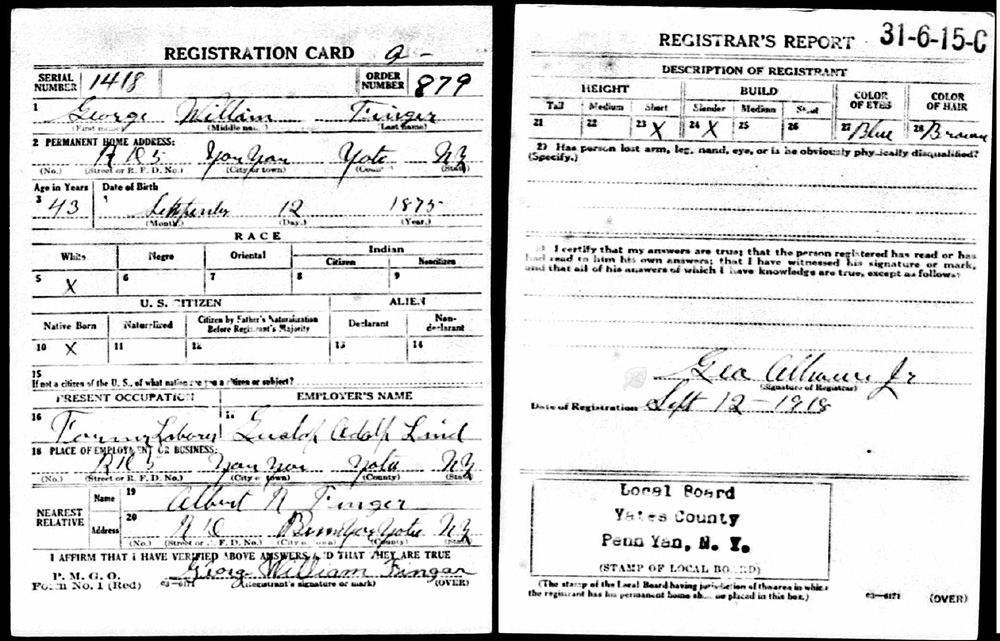 REGISTRATION CARD
SERIAL NUMBER 1418 ORDER NUMBER 879
1 George William Finger
(First name) (Middle name) (Last name)
2 PERMANENT HOME ADDRESS:
(No.) (Street or R. F. D. No.) (City or town) (County) (State)
Age in Years Date of Birth
3 43 4 September 12 1875
(Month.) (Day.) (Year.)
RACE
White Negro Oriental Indian
Citizen Noncitizen
5 X 6 7 8 9
U. S. CITIZEN ALIEN
Native Born Naturalized Citizen by Father's Naturalization Before Registrant's Majority Declarant Non-declarant
10 X 11 12 13 14
15
If not a citizen of the U. S., of what nation are you a citizen or subject?
PRESENT OCCUPATION EMPLOYER'S NAME
16 Farm Laborer 17 Gustof Adolf Lind
18 PLACE OF EMPLOYMENT OR BUSINESS:
(No.) (Street or R. F. D. No.) (City or town) (County) (State)
NEAREST RELATIVE
Name 19 Albert N Finger
Address 20
(No.) (Street or R. F. D. No.) (City or town) (County) (State)
I AFFIRM THAT I HAVE VERIFIED ABOVE ANSWERS AND THAT THEY ARE TRUE
P. M. G. O.
Form No. 1 (Red) 03—6171 George William Fingar
(Registrant's signature or mark) (OVER)
REGISTRAR'S REPORT 31-6-15-C
DESCRIPTION OF REGISTRANT
HEIGHT BUILD COLOR OF EYES COLOR OF HAIR
Tall Medium Short Slender Medium Stout
21 22 23 X 24 X 25 26 27 Blue 28 Brown
29 Has person lost arm, leg, hand, eye, or is he obviously physically disqualified?
(Specify.)
30 I certify that my answers are true; that the person registered has read or has
had read to him his own answers; that I have witnessed his signature or mark,
and that all of his answers of which I have knowledge are true, except as follows:
(Signature of Registrar)
Date of Registration Sept 12 - 1918
Local Board
Yates County
Penn Yan, N. Y.
(STAMP OF LOCAL BOARD)
(The stamp of the Local Board having jurisdiction of the area in which
the registrant has his permanent home shall be placed in this box.)
03—6171 (OVER)